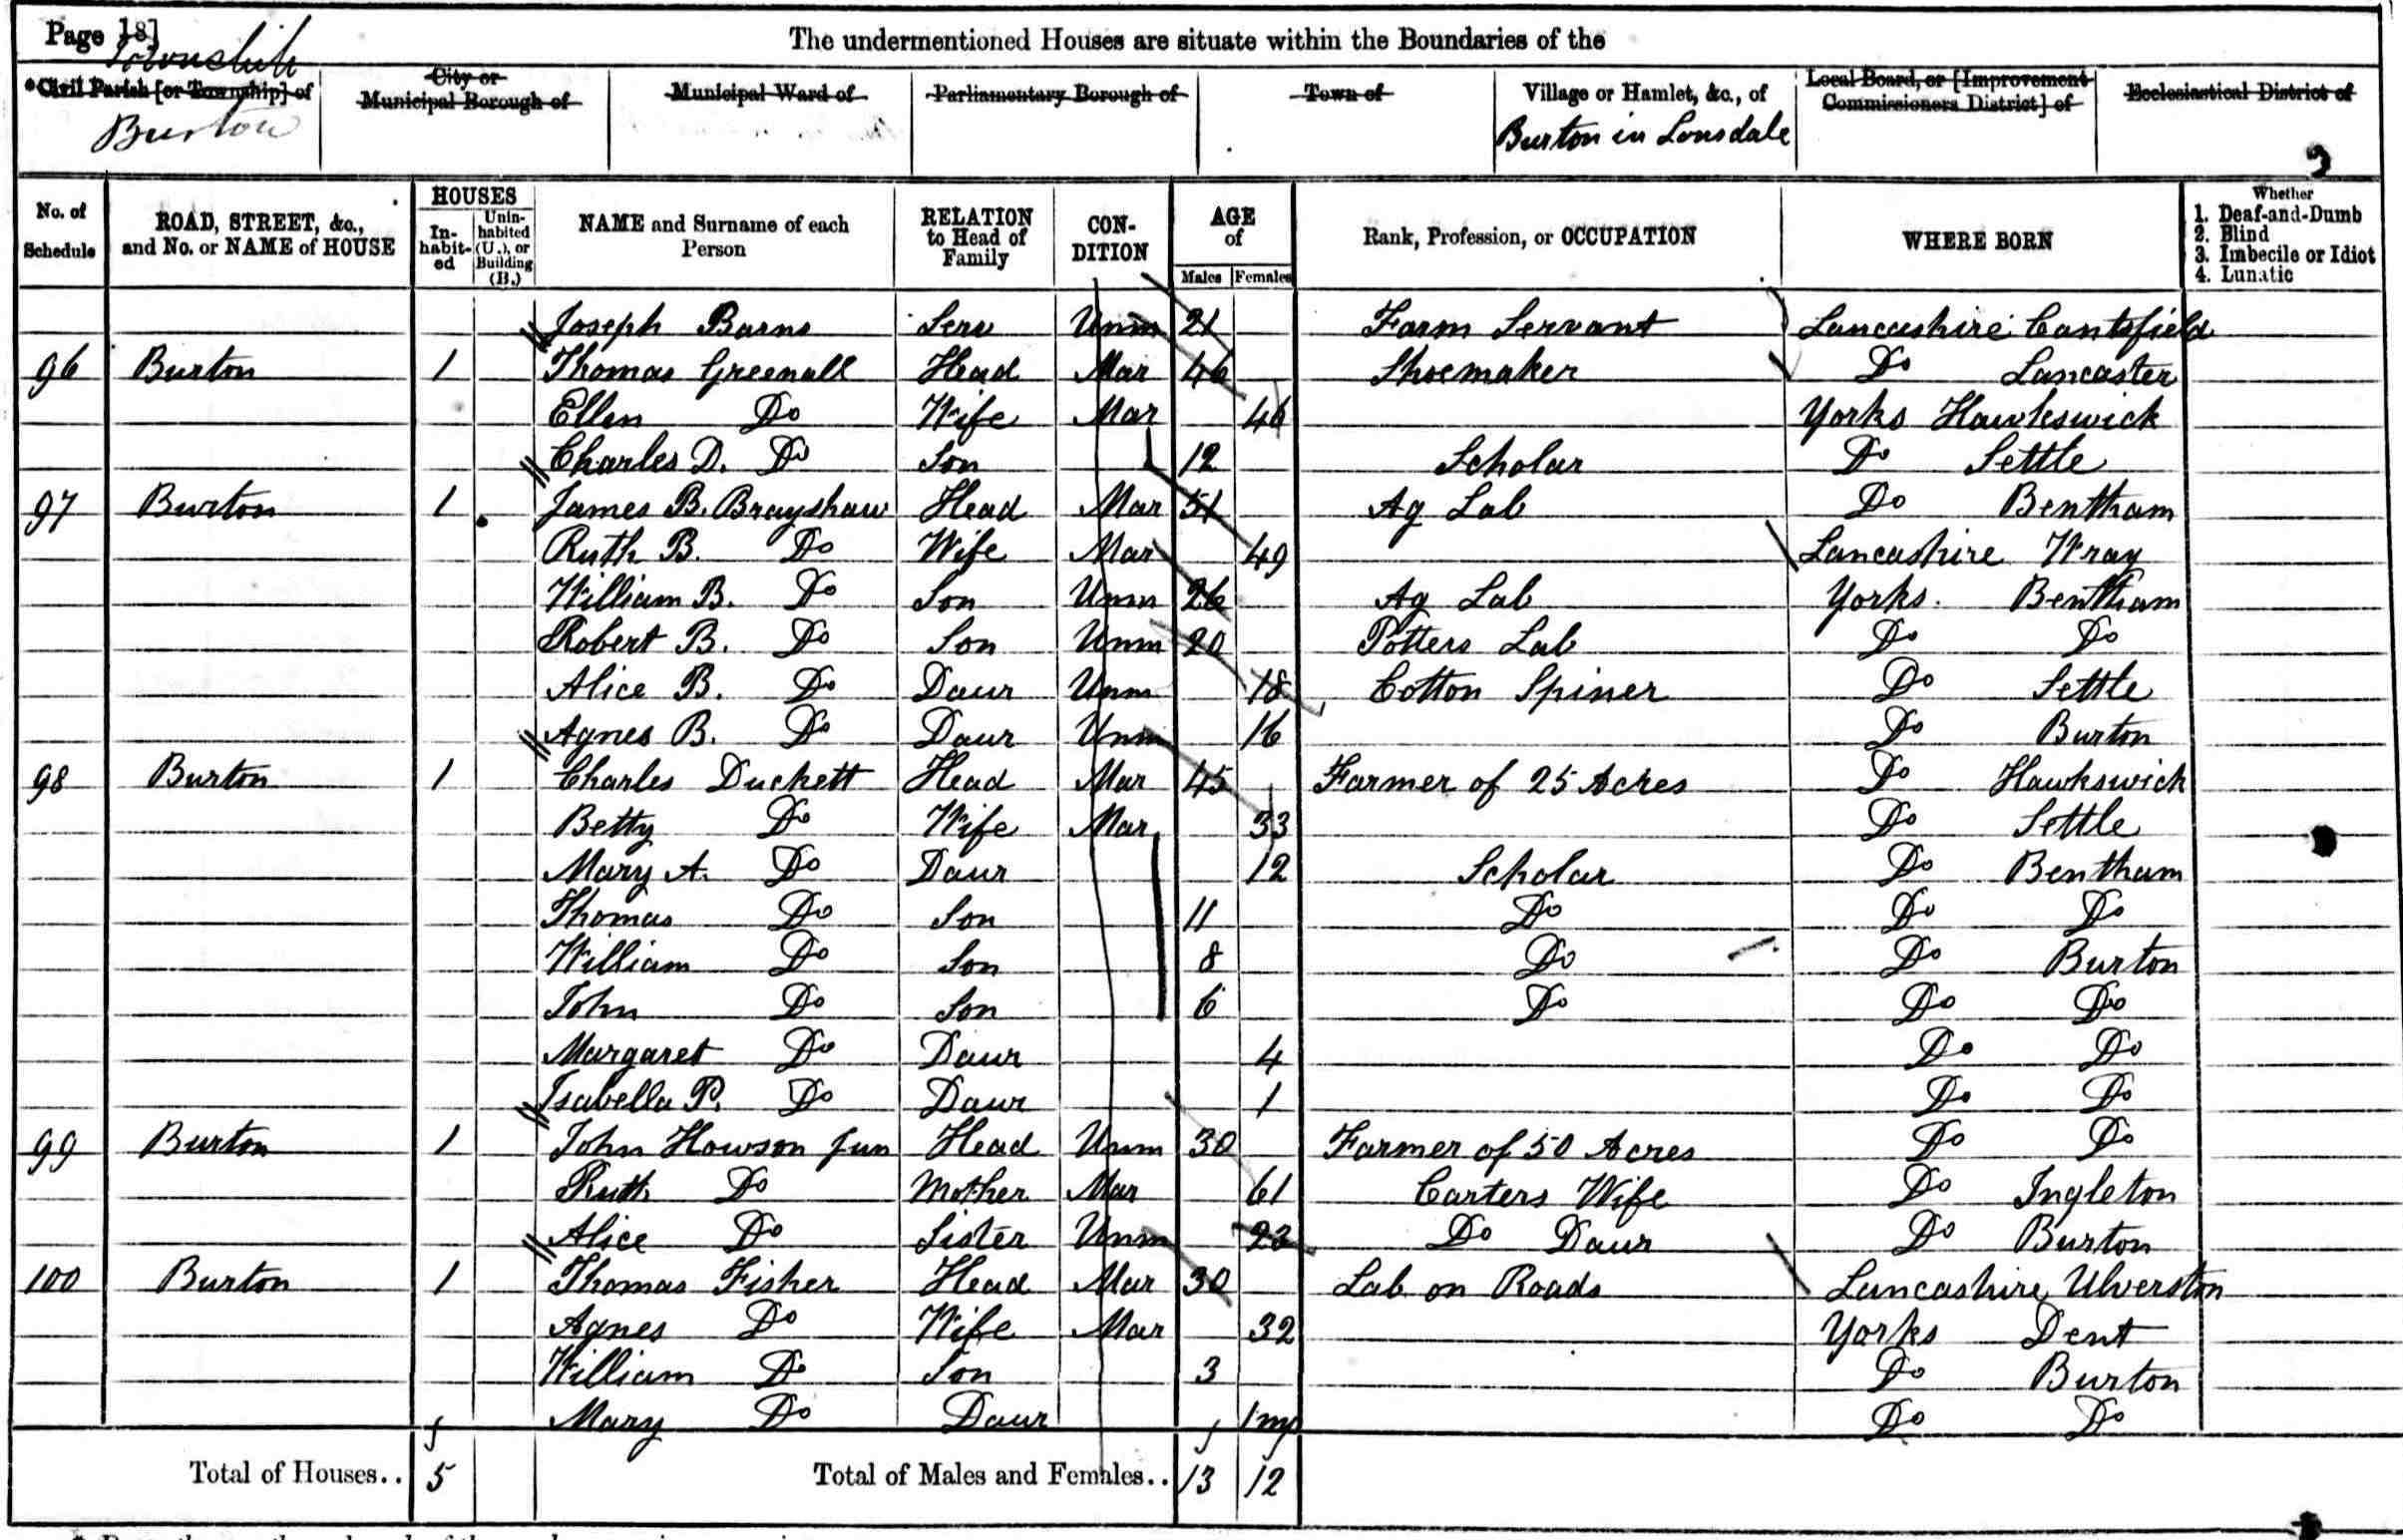 Page 18]
The undermentioned Houses are situate within the Boundaries of the
Township
*Civil Parish [or Township] of
Burton
City or
Municipal Borough of
Municipal Ward of
Parliamentary Borough of
Town of
Village or Hamlet, &c., of
Burton in Lonsdale
Local Board, or [Improvement
Commissioners District] of
Ecclesiastical District of
No. of
Schedule
ROAD, STREET, &c.,
and No. or NAME of HOUSE
HOUSES
In-
habit-
ed
Unin-
habited
(U.), or
Building
(B.)
NAME and Surname of each
Person
RELATION
to Head of
Family
CON-
DITION
AGE
of
Males Females
Rank, Profession, or OCCUPATION
WHERE BORN
Whether
1. Deaf-and-Dumb
2. Blind
3. Imbecile or Idiot
4. Lunatic
Joseph Barns Serv Unm 21 Farm Servant Lancashire Cantsfield
96 Burton 1 Thomas Greenall Head Mar 46 Shoemaker Do Lancaster
Ellen Do Wife Mar 46 Yorks Hawkswick
Charles D. Do Son 12 Scholar Do Settle
97 Burton 1 James B. Brayshaw Head Mar 51 Ag Lab Do Bentham
Ruth B. Do Wife Mar 49 Lancashire Wray
William B. Do Son Unm 26 Ag Lab Yorks. Bentham
Robert B. Do Son Unm 20 Potters Lab Do Do
Alice B. Do Daur Unm 18 Cotton Spiner Do Settle
Agnes B. Do Daur Unm 16 Do Burton
98 Burton 1 Charles Duckett Head Mar 45 Farmer of 25 Acres Do Hawkswick
Betty Do Wife Mar 33 Do Settle
Mary A. Do Daur 12 Scholar Do Bentham
Thomas Do Son 11 Do Do Do
William Do Son 8 Do Do Burton
John Do Son 6 Do Do Do
Margaret Do Daur 4 Do Do
Isabella P. Do Daur 1 Do Do
99 Burton 1 John Howson Jun Head Unm 30 Farmer of 50 Acres Do Do
Ruth Do Mother Mar 61 Carters Wife Do Ingleton
Alice Do Sister Unm 23 Do Daur Do Burton
100 Burton 1 Thomas Fisher Head Mar 30 Lab on Roads Lancashire Ulverston
Agnes Do Wife Mar 32 Yorks Dent
William Do Son 3 Do Burton
Mary Do Daur 1 mo Do Do
Total of Houses.. 5 Total of Males and Females.. 13 12